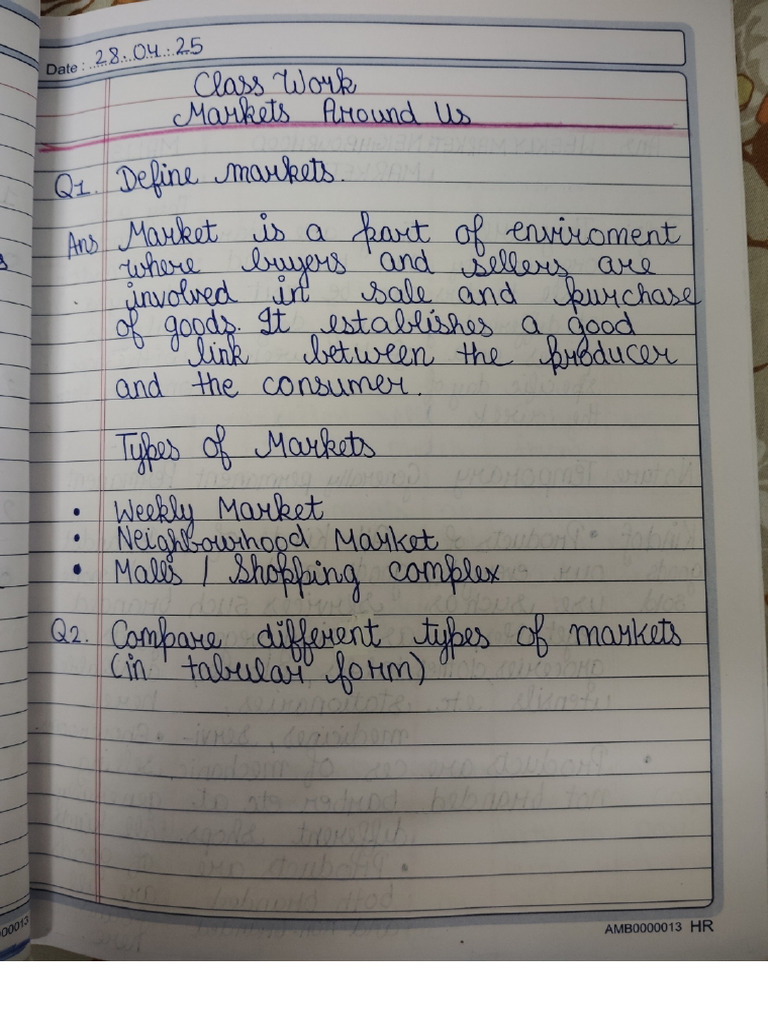 Date : 28.04.25
Class Work
Markets Around Us
Q1. Define markets.
Ans Market is a part of enviroment
where buyers and sellers are
involved in sale and purchase
of goods. It establishes a good
link between the producer
and the consumer.
Types of Markets
• Weekly Market
• Neighbourhood Market
• Malls / Shopping complex
Q2. Compare different types of markets
(in tabular form)
AMB0000013 HR